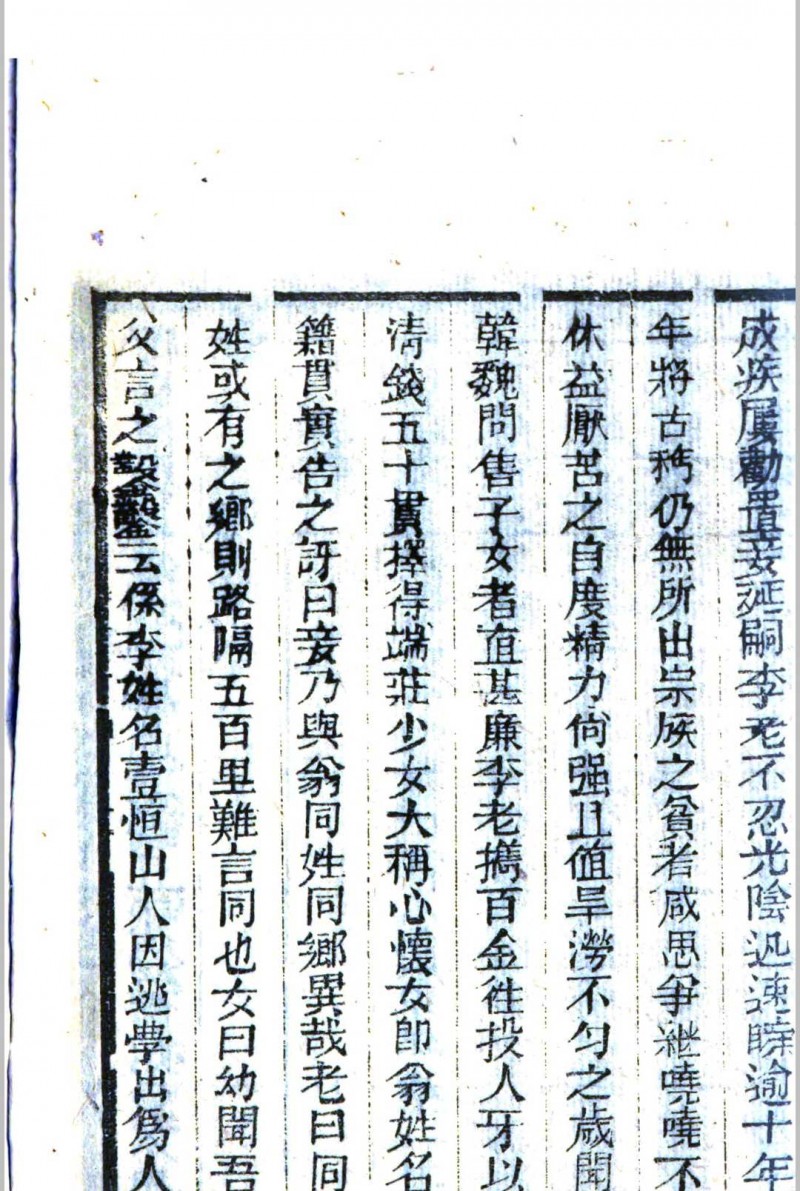 成疾屢勸置妾延嗣李老不忍光陰迅速瞬逾十年
年將古稀仍無所出宗族之貧者咸思爭繼嘵嘵不
休益厭苦之自度精力尙强且值旱澇不匀之歲聞
韓魏間售子女者直甚廉李老擕百金徃投人牙以
清錢五十貫擇得端莊少女大稱心懷女卽翁姓名
籍貫實告之訝曰妾乃與翁同姓同鄉異哉老曰同
姓或有之鄉則路隔五百里難言同也女曰幼聞吾
父言之鑿鑿云係李姓名壹恒山人因逃學出爲人